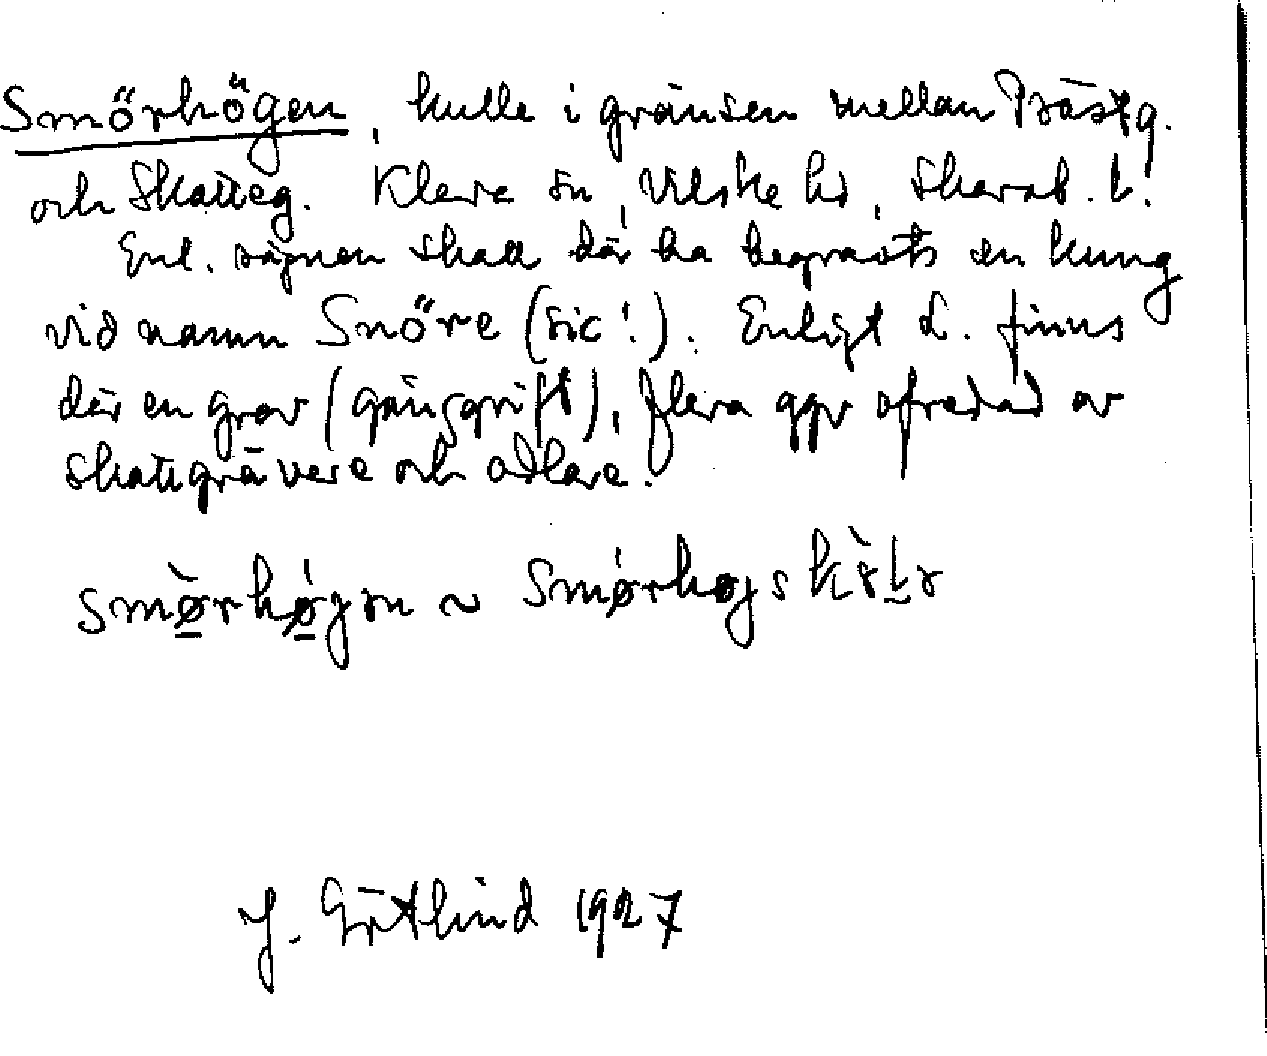 Smörhögen, kulle i gränsen mellan Prästg.
och Skatteg. Kleva sn, Vilske hd, Skarab. l.
Enl. sägnen skall där ha begravts en kung
vid namn Snöre (sic!). Enligt L. finns
där en grav (gånggrift), flera ggr ofredad av
skattgrävare och odlare.
smø̀rhǿgən ~ Smǿrhøgs
J. Götlind 1927